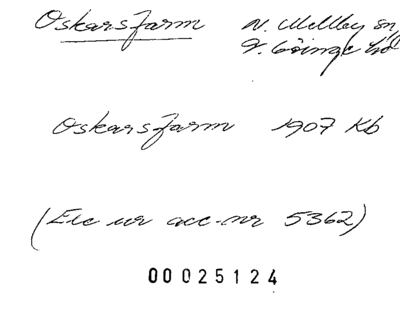 Oskarsfarm N. Mellby sn,
V. Göinge hd
Oskarsfarm 1907 Kb
(Exc ur acc.nr 5362)
00025124